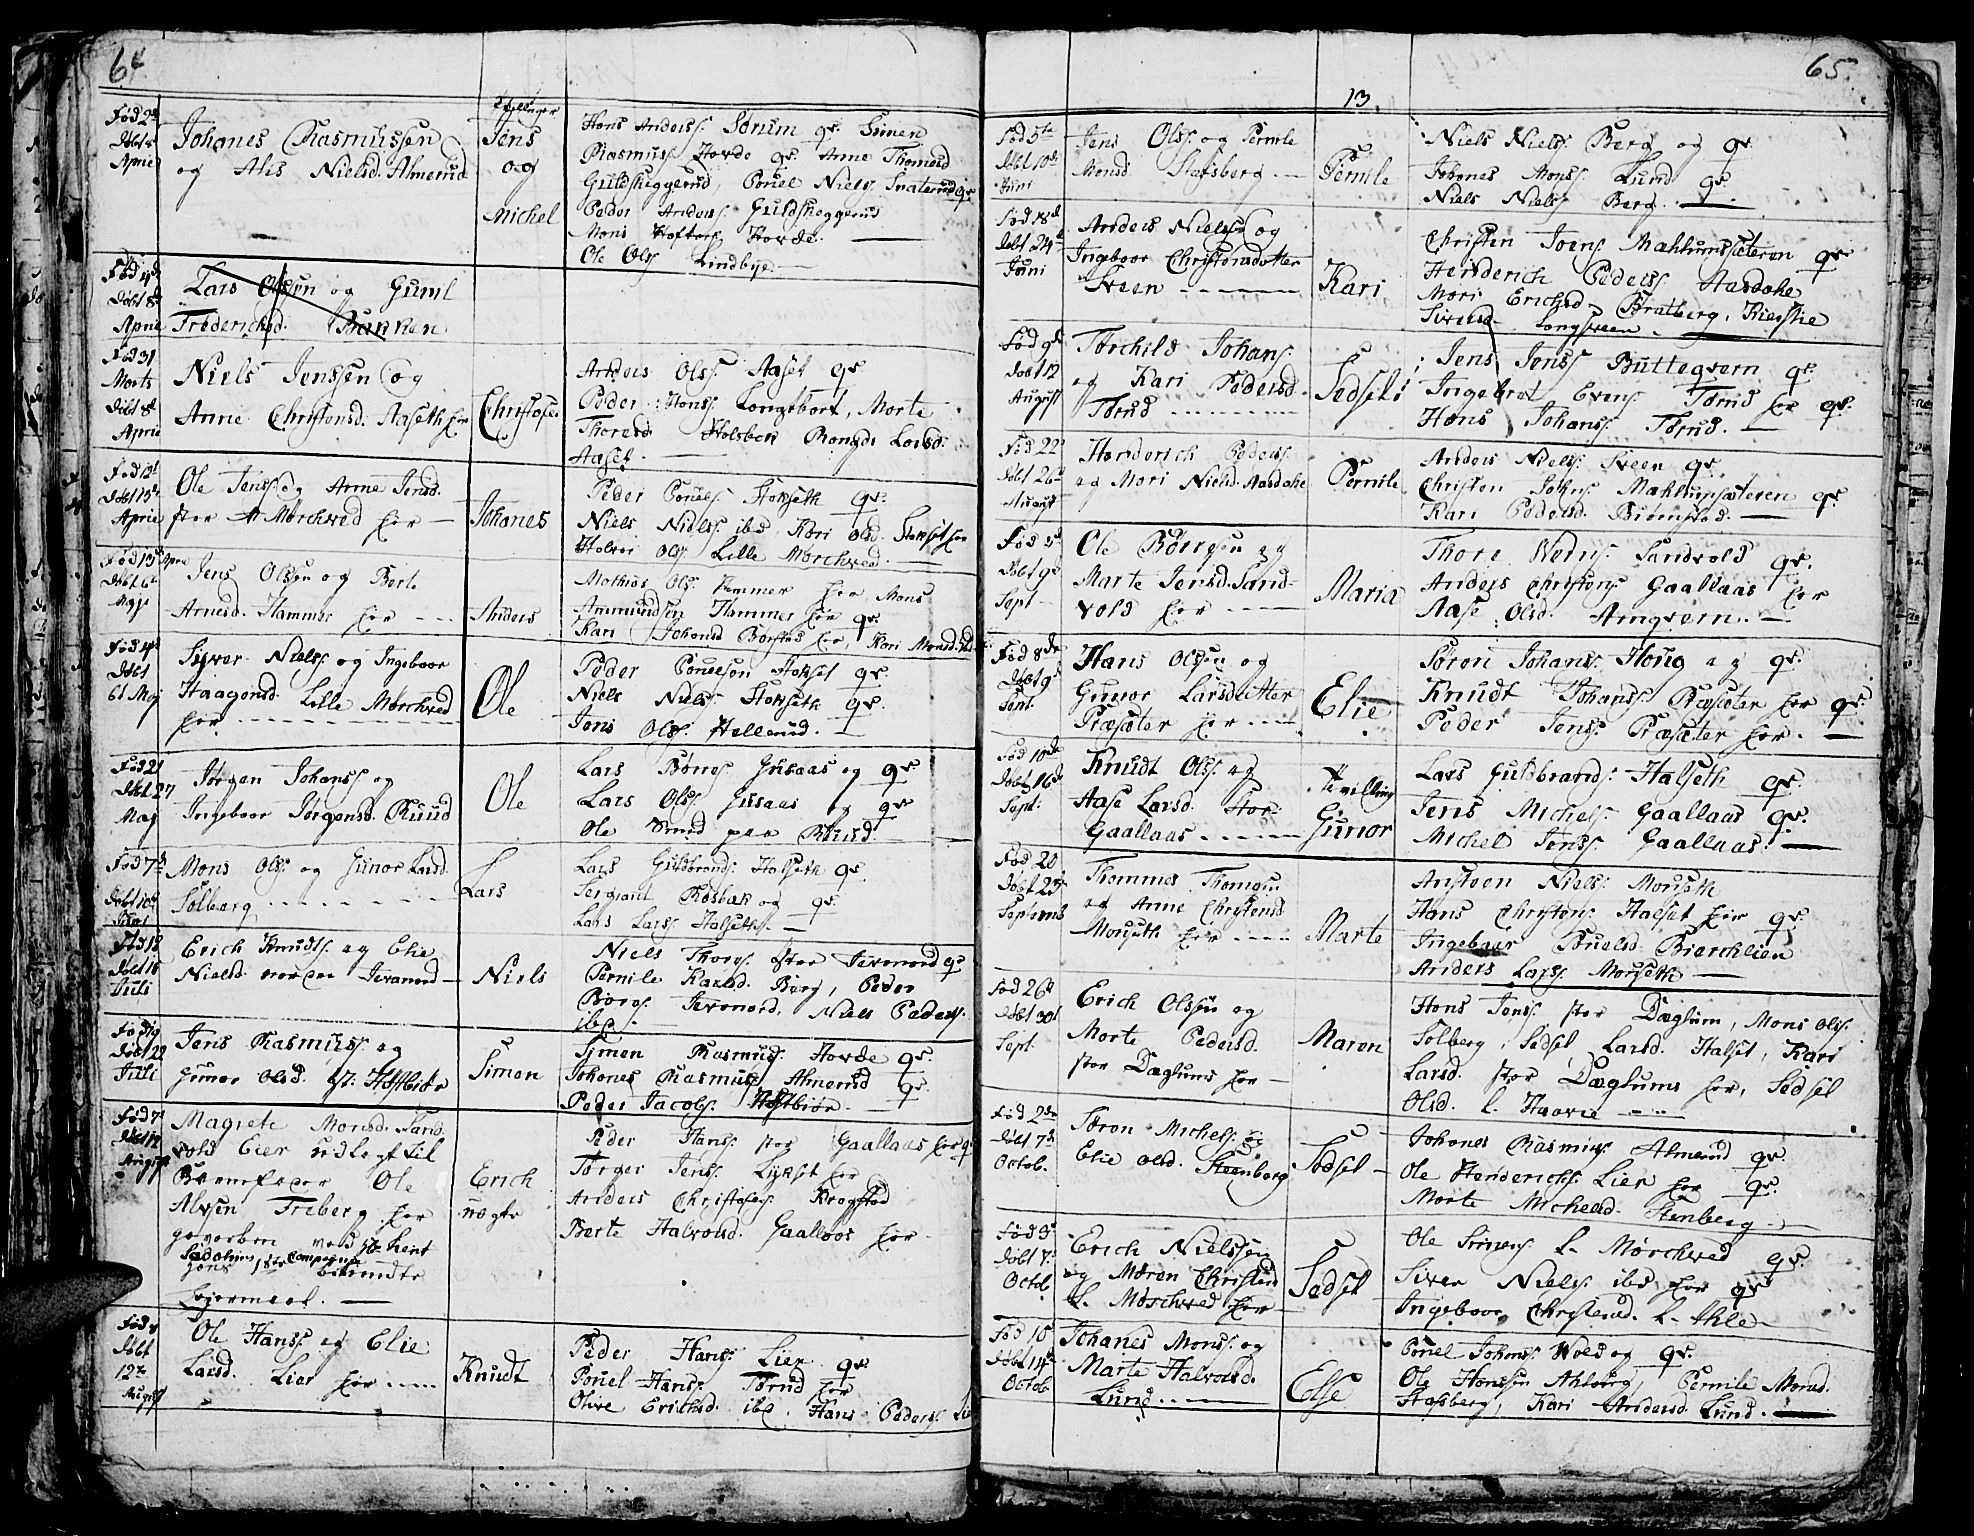 64.
Fød 2de
Døbt
April
Johanes Rasmussen
og Alis Nielsd. Almerud
Tvillinger
Jens
og
Michel
Hans Anderss. Sørum qs. Simen
Rasmuss. Hovde qs. Anne Thomesd
Guldsheggerud, Pouel Niels. Snaterud qs
Peder Anderss. Guldsheggerud
Mons Hovde.
Ole Olss. Lindbye.
Fød 4de
Døbt 8de
April
Lars Olssen og Guml
Frederichsd. Banken
Fød 31
Morts
Døbt 8de
April
Niels Jenssen og
Anne Christensd. Aaseth her
Christofer
Anders Olss. Aaset qs
Peder Hanss. Longebort, Morte
Thoresd. Larsd.
Aaset.
Fød 12t
Døbt 15de
April
Ole Jenss. og Anne Jensd.
stor Mørchved her
Johanes
Peder Pouels. Stokseth qs.
Niels Niels. ibd. Kari Olsd. Stokset her
Halvor Olss. Lille Mørchved.
Fød 13de April
Døbt 6te
Maji
Jens Olssen og Berte
Arnesd. Hammer her
Anders
Mathias Olss. Hammer her Mons
Ammundsen Hammer her qs.
Kari Johansd Børstad her, Kari Monsd.
Fød 4de
Døbt
6t Maj
Siver Niels. og Ingeboor
Haagensd. Lille Mørchved
her
Ole
Peder Pouelsen Stokset qs.
Niels Niels. Stokseth qs.
Jens Olss. Hellerud.
Fød 21
Døbt 27
Maj
Jørgen Johanss. og
Ingeboor Jørgensd. Ruud
Ole
Lars Børres. Gusaas og qs.
Lars Olss. Gusaas og qs
Ole Smed paa Ruud.
Fød 7de
Døbt 10de
Mons Olss. og Gunor Larsd
Solberg
Lars
Lars Guldbrands. Halseth qs.
Sergiant Rosbæk og qs.
Lars Larss. Halseth.
Fød 12
Døbt 15
Juli
Erich Knudts. og Elie
Nielsd. nordre Jevanord
Niels
Niels Thores. stor Jevanord qs
Pernile Karlsd. Berg, Peder
Børres. Jevanord, Niels Peders.
ibd.
Fød 19
Døbt 22
Juli
Jens Rasmuss. og
Gunor Olsd. Østbiør
Simon
Simen Rasmuss. Hovde qs.
Johanes Rasmuss. Almerud qs.
Peder Jacobs. Østbiør.
Fød 7de
Døbt 12
August
Magrete Monsd. Sand
vold Eier udlagt til
Barnefader Ole
Alvsen Freberg her
geverben ved Hr. Lient
Compagni
bemeldte
Erich
uægte
Peder Hans. stor Gaallaas her q
Jørger Jens. Lykset her
Anders Christofers. Krogstad
Berte Halvorsd. Gaallaas her
Fød 4
Døbt
12te
August
Ole Hanss. og Elie
Larsd. Lier her
Knudt
Peder Hans. Lier qs
Pouel Hans. Tørud her
Olive Erichsd. ibd. Hans Peders. Lie
65.
13.
Fød 5te
Døbt 10de
Juni
Jens Olss. og Pernile
Monsd. Stafsberg
Pernile
Niels Niels. Berg og qs.
Johanes Mons. Lund qs.
Niels Niels. Berg.
Fød 18d
Døbt 24
Juni
Anders Nielss. og
Ingeboor Christensdatter
Sveen
Kari
Christen Joens. Mahlumssæteren qs
Henderich Peders. Aasdahe
Mari Erichsd. Bratberg, Kierstie
Siversd. Longsveen.
Fød 9de
Døbt 12
August
Torchild Johans.
og Kari Pedersd.
Tørud
Sedsel
Jens Jenss. Buttegvern qs.
Ingebret Evens. Tørud her qs.
Hans Johans. Tørud.
Fød 22
Døbt 26de
August
Henderich Peders.
og Mari Nielsd. Aasdahe
Pernile
Anders Niels. Sveen qs.
Christen Johns. Mahlumsæteren qs.
Kari Pedersd. Biørnstad.
Fød 5d
Døbt 9de
Sept
Ole Børresen og
Marte Jensd. Sand-
vold her
Maria
Thore Sandvold qs.
Anders Christens. Gaallaas her
Aase Olsd. Arnqvern.
Fød 8de
Døbt 9de
Sept.
Hans Olssen og
Gunor Larsdatter
Præsæter her
Elie
Søren Johans. Houg og qs.
Knudt Johans. Præsæter her qs.
Peder Jens. Præsæter her.
Fød 10de
Døbt 16de
Sept:
Knudt Olss. og
Aase Larsd. Stor-
Gaallaas
Tvilling
Gunor
Lars Guldbrands. Halseth qs.
Jens Michels. Gaallaas qs.
Michel Jens. Gaallaas.
Fød 20
Døbt 23
Septemb
Thommes Thomesen
og Anne Christensd
Mouseth her
Marte
Anstoen Niels. Mouseth
Hans Christens. Halset her qs.
Ingeboor Pouelsd. Bierchlien
Anders Larss. Mouseth
Fød 26de
Døbt 30t
Sept.
Erich Olssen og
Morte Pedersd.
stor Dæglums her
Maren
Hans Jens. stor Dæglum, Mons Olss.
Solberg, Sedsel Larsd. Halset, Kari
Larsd. stor Dæglums her, Sedsel
Olsd. L. Haavie
Fød 2de
Døbt 7de
Octob.
Søren Michels. og
Elie Olsd. Steenberg
Sedsel
Johanes Rasmuss. Almerud qs.
Ole Henderichs. Lier her qs.
Morte Michelsd. Stenberg
Fød 3de
Døbt 7de
Octob.
Erich Nielssen
og Maren Christensd
L. Mørchved her
Sedsel
Ole Simens. L. Mørchved qs.
Siver Niels. ibd her qs
Ingeboor Christensd. L. Ihle
Fød 10
Døbt 14de
Octob.
Johanes Mons. og
Marte Halvorsd.
Lund
Else
Pouel Johans. Vold og qs.
Ole Hanssen Ahlberg, Pernile Monsd.
Stafsberg, Kari Andersd. Lund.